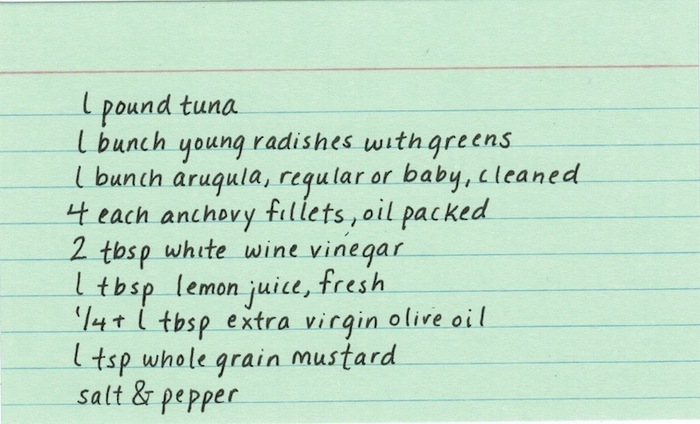 1 pound tuna
1 bunch young radishes with greens
1 bunch arugula, regular or baby, cleaned
4 each anchovy fillets, oil packed
2 tbsp white wine vinegar
1 tbsp lemon juice, fresh
1/4 + 1 tbsp extra virgin olive oil
1 tsp whole grain mustard
salt & pepper